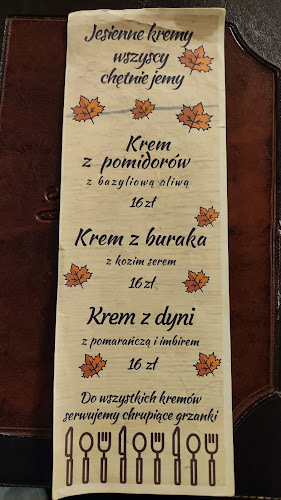 Jesienne kremy
wszyscy
chętnie jemy
Krem
z pomidorów
z bazyliową oliwą
16 zł
Krem z buraka
z kozim serem
16 zł
Krem z dyni
z pomarańczą i imbirem
16 zł
Do wszystkich kremów
serwujemy chrupiące grzanki